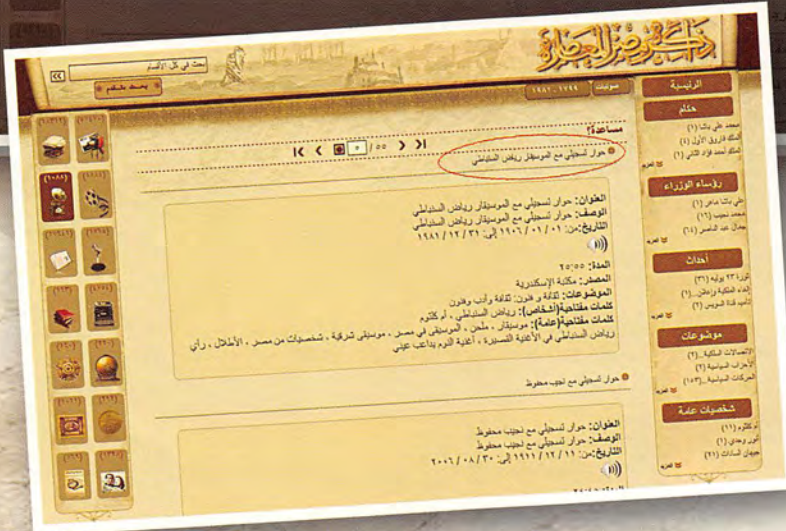 ذاكرة مصر المعاصرة
بحث في كل الأقسام
بحث متقدم
صوتيات
١٧٩٩ - ١٩٨١
الرئيسية
حكام
محمد علي باشا (١)
الملك فاروق الأول (٤)
الملك أحمد فؤاد الثاني (١)
المزيد
رؤساء الوزراء
علي باشا ماهر (١)
محمد نجيب (١٦)
جمال عبد الناصر (٦٤)
المزيد
أحداث
ثورة ٢٣ يوليه (٣٦)
إلغاء الملكية وإعلان...(٦)
تأميم قناة السويس (٢)
المزيد
موضوعات
الاتصالات الملكية...(٢)
الأحزاب السياسية (٢)
الحركات السياسية...(١٥٣)
المزيد
شخصيات عامة
أم كلثوم (١١)
أنور وجدي (١)
جيهان السادات (٢١)
المزيد
مساعدة؟
حوار تسجيلي مع الموسيقار رياض السنباطي
العنوان: حوار تسجيلي مع الموسيقار رياض السنباطي
الوصف: حوار تسجيلي مع الموسيقار رياض السنباطي
التاريخ:من: ٠١ / ٠١ / ١٩٠٦ إلى: ٣١ / ١٢ / ١٩٨١
المدة: ٢٥:٥٥
المصدر: مكتبة الإسكندرية
الموضوعات: ثقافة و فنون: ثقافة وأدب وفنون
كلمات مفتاحية(أشخاص): رياض السنباطي ، أم كلثوم
كلمات مفتاحية(عامة): موسيقار ، ملحن ، الموسيقى في مصر ، موسيقى شرقية ، شخصيات من مصر ، الأطلال ، رأي
رياض السنباطي في الأغنية القصيرة ، أغنية النوم يداعب عيني
حوار تسجيلي مع نجيب محفوظ
العنوان: حوار تسجيلي مع نجيب محفوظ
الوصف: حوار تسجيلي مع نجيب محفوظ
التاريخ:من: ١١ / ١٢ / ١٩١١ إلى: ٣٠ / ٠٨ / ٢٠٠٦